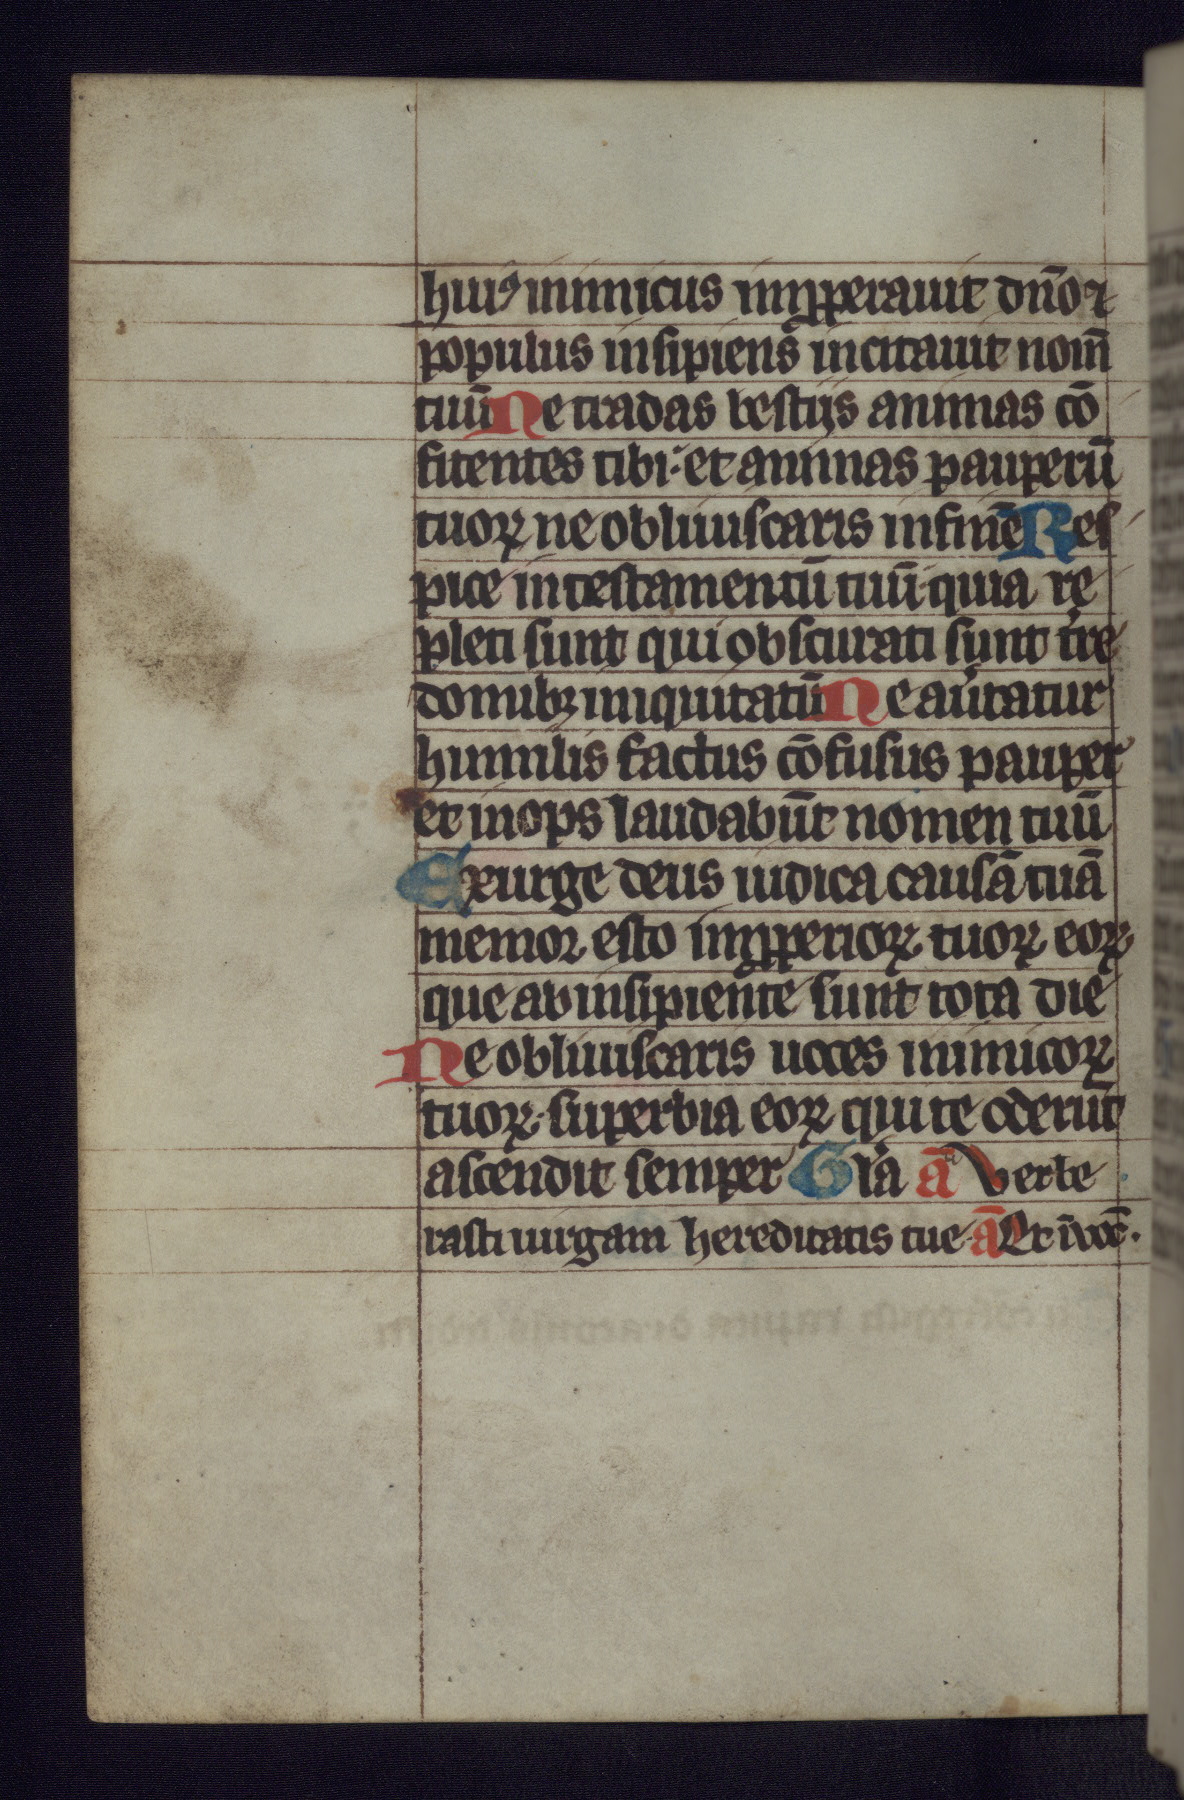 hui⁹ inimicus imꝓperauit dn̄o ⁊
populus insipiens incitauit nom̄
tuū Ne tradas bestijs animas cō
fitentes tibi· et animas pauperū
tuoꝝ ne obliuiscaris in finē Res
pice in testamentū tuū quia re
pleti sunt qui obscurati sunt t̄re
domibꝫ iniquitatū Ne au̾tatur
humilis factus cōfusus pauper
et inops laudabūt nomen tuū
Exurge deus iudica causā tuā
memor esto imꝓperioꝝ tuoꝝ eoꝝ
que ab insipiente sunt tota die
Ne obliuiscaris uoces inimicoꝝ
tuoꝝ· superbia eoꝝ qui te oderūt
ascendit semper Gl̄a ā Libe
rasti uirgam hereditatis tue ā Et īuoc̄·